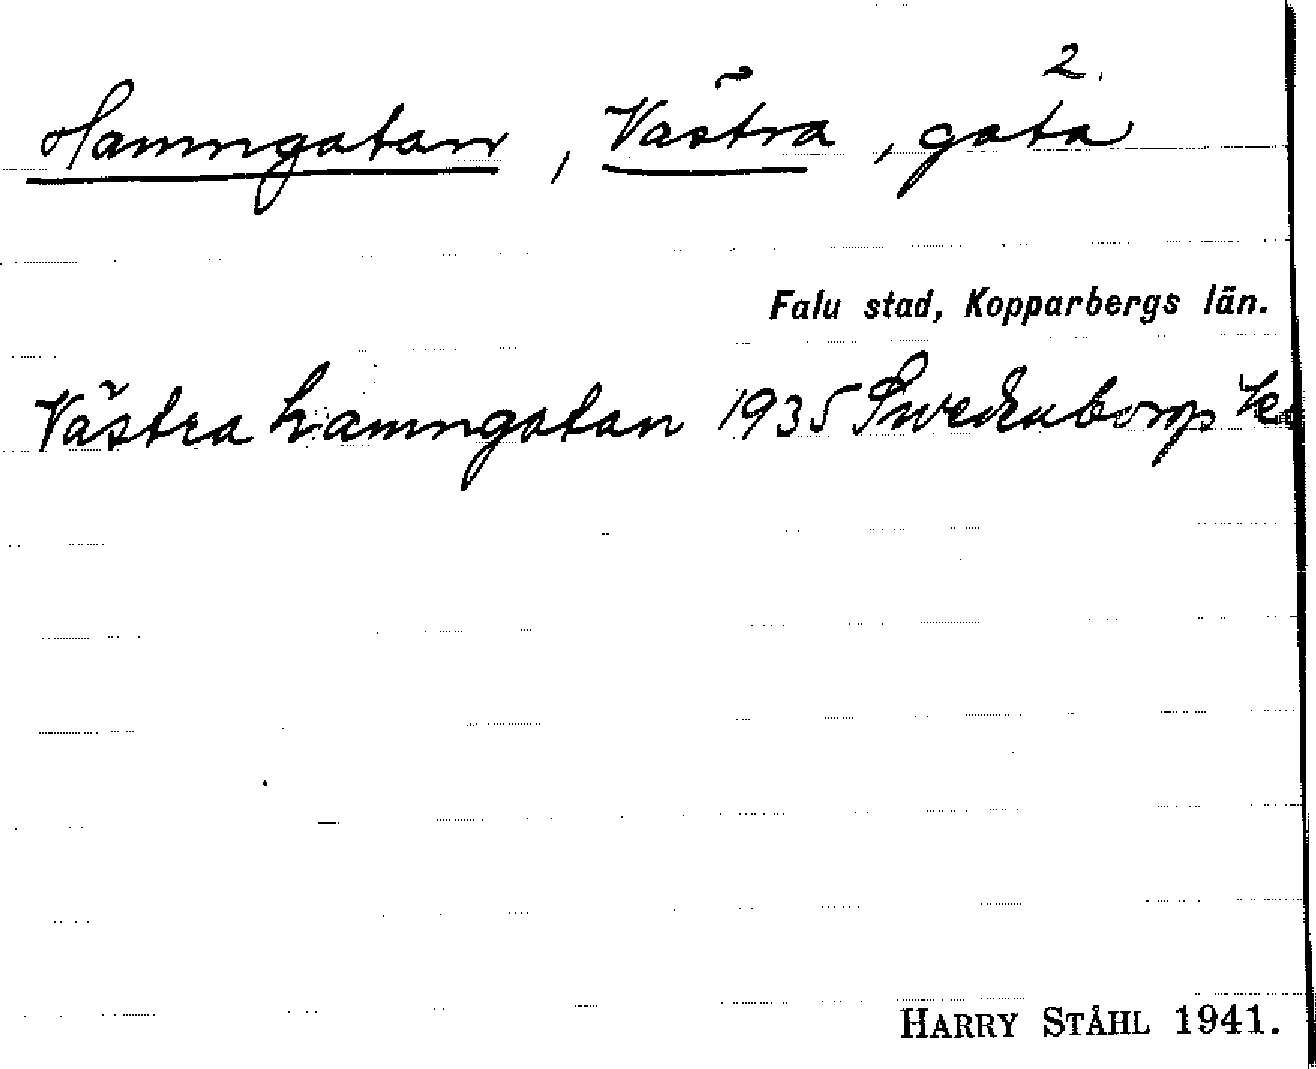 2.
Hamngatan, Västra, gata
Falu stad, Kopparbergs län.
Västra hamngatan 1935 Swedenborg
HARRY STÅHL 1941.